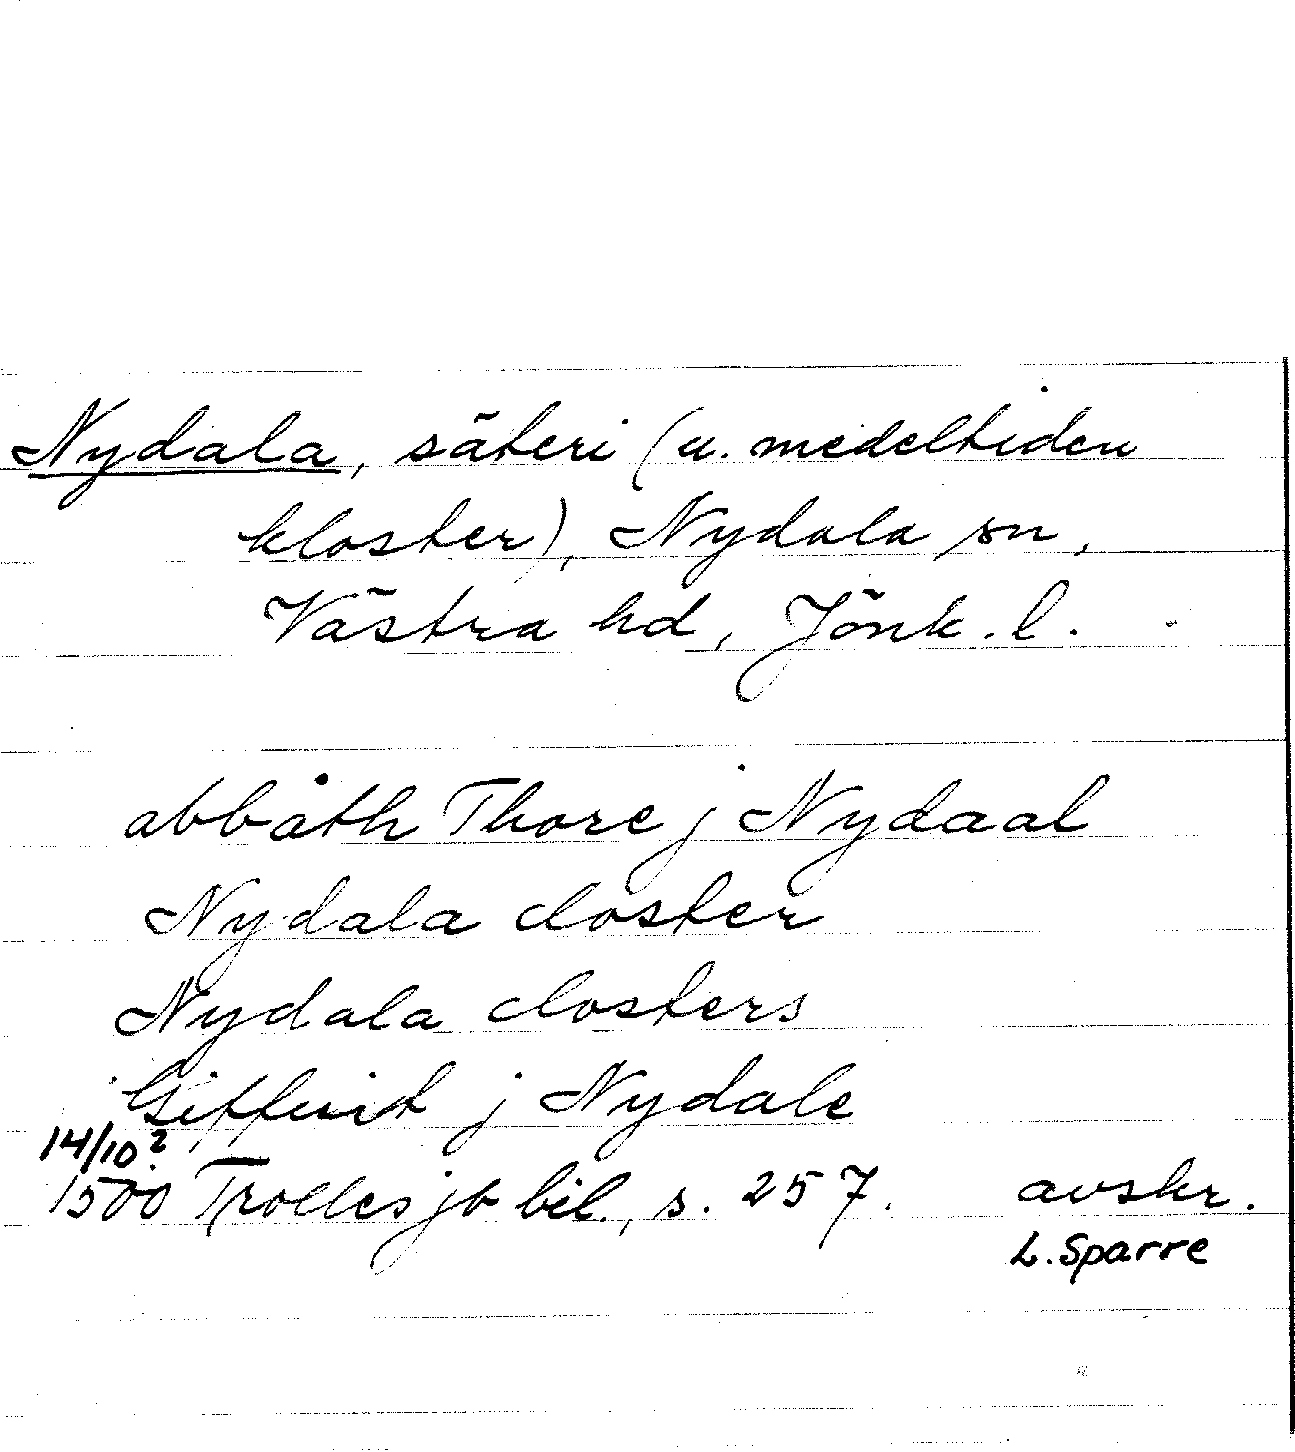 Nydala, säteri (u. medeltiden
kloster), Nydala sn,
Västra hd, Jönk. l.
abbath Thore j Nydaal
Nydala closter
Nydala closters
Giffuit j Nydale
14/10?
1500 Trolles jb bil., s. 257. avskr.
L. Sparre